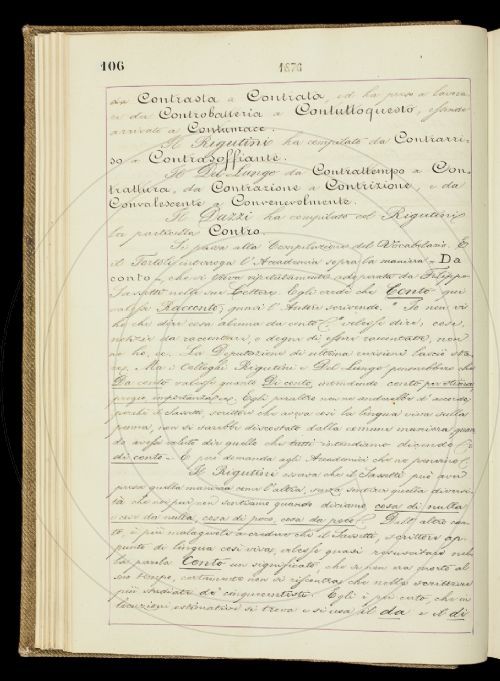 106
1876
da Contrasta a Contrata, ed ha preso a lavora
re da Controbatteria a Contuttoquesto, essendo
arrivato a Contumace.
Il Rigutini ha compilato da Contrarri-
so a Contrasoffiante.
Il Del Lungo da Contrattempo a Con-
trattura, da Contrazione a Contrizione, e da
Convalescente a Convenevolmente.
Il Dazzi ha compilato col Rigutini
la particella Contro.
Si passa alla Compilazione del Vocabolario. E
il Tortoli interroga l'Accademia sopra la maniera - Da
conto - che si trova ripetutamente adoperata da Filippo
Sassetti nelle sue Lettere. Egli crede che Conto qui
valesse Racconto; quasi l'Autore scrivendo: " Io non vi
ho che dire cosa alcuna da conto " volesse dire, cose,
notizie da raccontare, o degne di essere raccontate, non
ne ho, ec. La Deputazione di ultima revisione lasciò sta-
re. Ma i Colleghi Rigutini e Del Lungo penserebbero che
Da conto valesse quanto Di conto, intendendo conto per stima,
pregio, importanza, ec. Egli peraltro non ne andrebbe d'accordo,
perchè il Sassetti, scrittore che aveva così la lingua viva sulla
penna, non si sarebbe discostato dalla comune maniera quan-
do avesse voluto dire quello che tutti intendiamo dicendo
di conto - E però domanda agli Accademici che ne pensino.
Il Rigutini osserva che il Sassetti può aver
preso quella maniera com'altra, senza sentire quella diversi-
tà che noi pur non sentiamo quando diciamo cosa di nulla
e cosa da nulla, cosa di poco, cosa da poco. D'altro can-
to, è più malagevole a credere che il Sassetti, scrittore ap-
punto di lingua così viva, volesse quasi risuscitare nel-
la parola Conto un significato, che se pur era morto al
suo tempo, certamente non si riscontra che nelle scritture
più studiate de' cinquecentisti. Egli è più certo, che in
locuzioni estimative si trova e si usa il da e il di